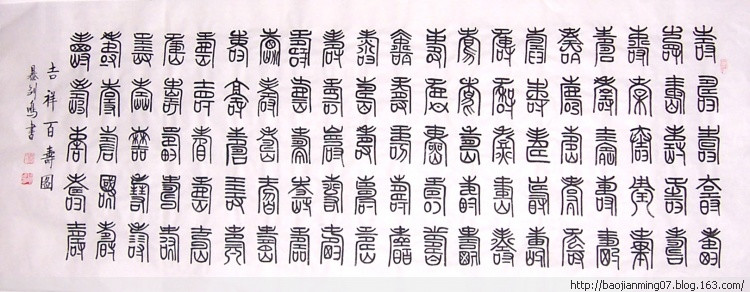 壽壽壽壽壽
壽壽壽壽壽
壽壽壽壽壽
壽壽壽壽壽
壽壽壽壽壽
壽壽壽壽壽
壽壽壽壽壽
壽壽壽壽壽
壽壽壽壽壽
壽壽壽壽壽
壽壽壽壽壽
壽壽壽壽壽
壽壽壽壽壽
壽壽壽壽壽
壽壽壽壽壽
壽壽壽壽壽
壽壽壽壽壽
壽壽壽壽壽
壽壽壽壽壽
壽壽壽壽壽
吉祥百壽圖
暴剑鸣書
http://baojianming07.blog.163.com/